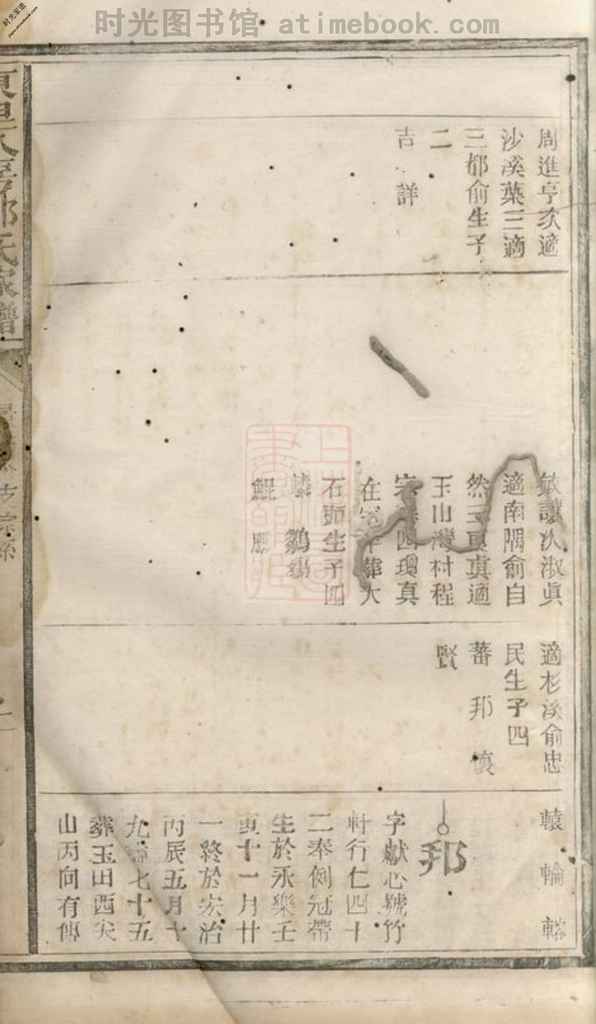 时光图书馆 atimebook.com
周進亨次適
沙溪葉三適
三都俞生子
二
吉 詳
讓次淑眞
適南隅俞自
然三真適
玉山灣村程
四真
在大
石生子四
麟 鸐
鯤
適杉溪俞忠
民生子四
蕃 邦
賢
轅 輪 輅
邦
字獻心號竹
軒行仁四十
二奉例冠帶
生於永樂壬
十一月廿
一終於宏治
丙辰五月十
九七十五
葬玉田西尖
山丙向有傳
氏家譜